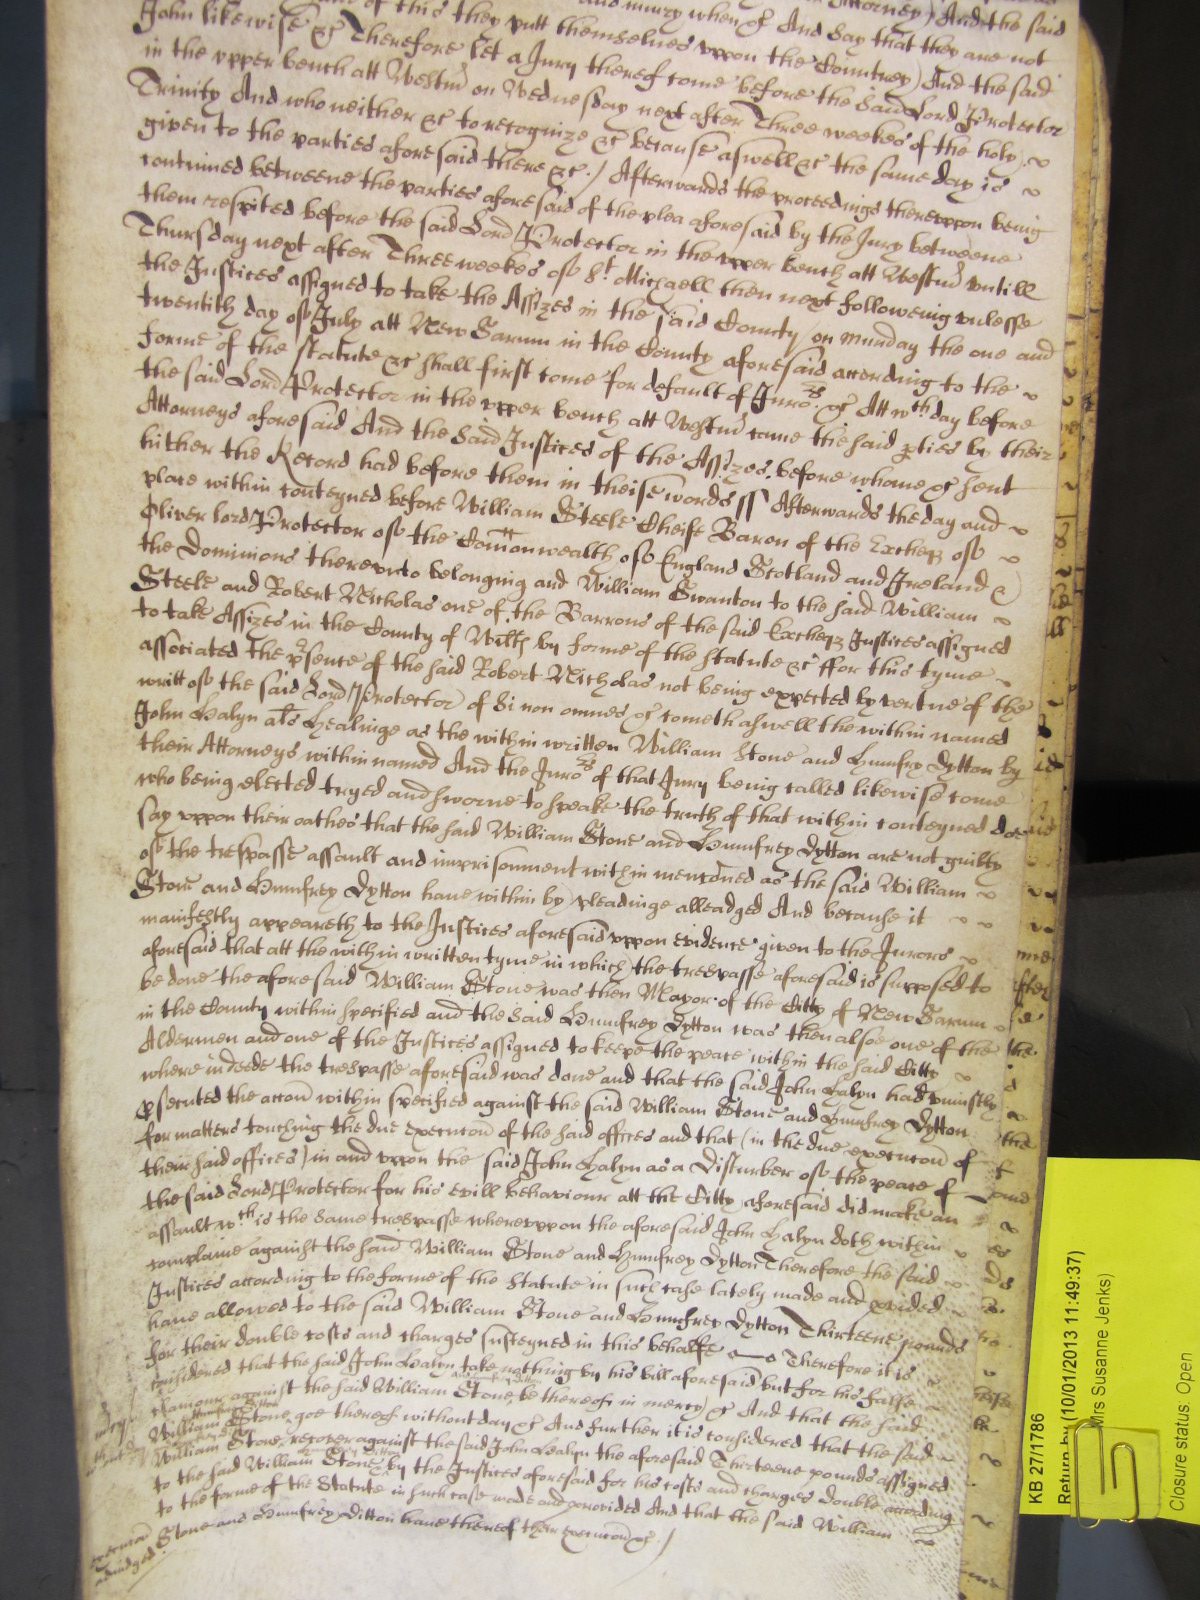 of this they putt themselves vppon the Countrey) And the said
John likewise &c Therefore let a Jury thereof come before the said Lord Protector
in the vpper bench att Westmr on Wednesday next after Three weekes of the holy
Trinity And who neither &c to recognize &c because aswell &c the same day is
given to the parties aforesaid there &c / Afterwards the proceedings therevppon being
continued betweene the parties aforesaid of the plea aforesaid by the Jury betweene
them respited before the said Lord Protector in the vpper bench att Westmr vntill
Thursday next after Three weekes of St Michaell then next followeing vnlesse
the Justices assigned to take the Assizes in the said County on Munday the one and
twentith day of July att New Sarum in the County aforesaid according to the
forme of the statute &c shall first come for default of Juro:rs &c Att wch day before
the said Lord Protector in the vpper bench att Westmr came the said pties by their
Attorneys aforesaid And the said Justices of the Assizes before whome &c sent
hither the Record had before them in theise words ss Afterwards the day and
place within conteyned before William Steele Cheife Baron of the Excheqr of
Oliver lord Protector of the Comonwealth of England Scotland and Ireland &
the Dominions therevnto belonging and William Swanton to the said William
Steele and Robert Nicholas one of the Barrons of the said Excheqr Justices assigned
to take Assizes in the County of Wilts by forme of the statute &c ffor this tyme
associated the psence of the said Robert Nicholas not being expected by vertue of the
writt of the said Lord Protector of Si non omnes &c cometh aswell the within named
John Halyn als Healinge as the within written William Stone and Humfry Dytton by
their Attorneys within named And the Juro:rs of that Jury being called likewise come
who being elected tryed and sworne to speake the truth of that within conteyned doe
say vppon their oathes that the said William Stone and Humfrey Dytton are not guilty
of the trespasse assault and imprisonment within mentoned as the said William
Stone and Humfrey Dytton have within by pleadinge alleadged And because it
manifestly appeareth to the Justices aforesaid vppon evidence given to the Jurors
aforesaid that att the within written tyme in which the trespasse aforesaid is supposed to
be done the aforesaid William Stone was then Mayor of the Citty of New Sarum
in the County within specified and the said Humfrey Dytton was then alsoe one of the
Aldermen and one of the Justices assigned to keepe the peace within the said Citty
where indeede the trespasse aforesaid was done and that the said John Halyn had vniustly
psecuted the accon within specified against the said William Stone and Humfrey Dytton
for matters touching the due execucon of the said offices and that (in the due execucon of
their said offices) in and vppon the said John Halyn as a Disturber of the peace of
the said Lord Protector for his evill behaviour att the Citty aforesaid did make an
assault wch is the same trespasse whereuppon the aforesaid John Halyn doth within
complaine against the said William Stone and Humfrey Dytton Therefore the said
Justices according to the forme of the Statute in such case lately made and pvided
have allowed to the said William Stone and Humfrey Dytton Thirteene pounds
for their double costs and charges susteyned in this behalfe Therefore it is
considered that the said John Halyn take nothing by his bill aforesaid but for his false
clamour against the said William Stone be thereof in mercy &c And that the said
William Stone goe thereof without day &c And further it is considered that the said
William Stone recover against the said John Halyn the aforesaid Thirteene pounds assigned
to the said William Stone by the Justices aforesaid for his costs and charges double according
to the forme of the Statute in such case made and provided And that the said William
Stone and Humfrey Ditton have thereof their execucon &c /
KB 27/1786
Return by (10/01/2013 11:49:37)
Mrs Susanne Jenks)
Closure status: Open